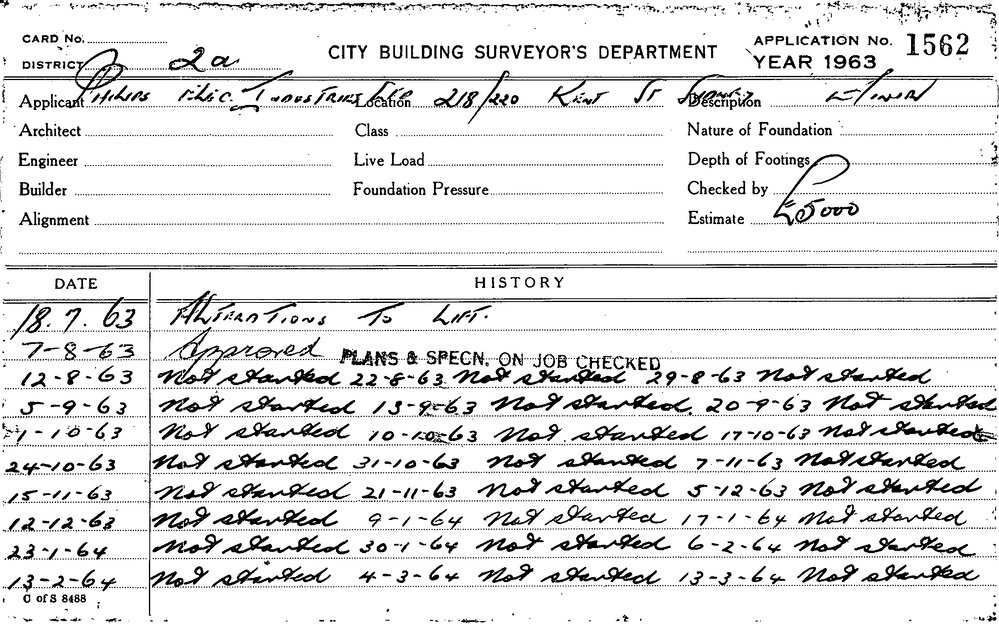 CARD No. CITY BUILDING SURVEYOR'S DEPARTMENT APPLICATION No. 1562
DISTRICT 2a YEAR 1963
Applicant PHILIPS ELEC. INDUSTRIES LTD Location 218/220 KENT ST SYDNEY Description
Architect Class Nature of Foundation
Engineer Live Load Depth of Footings
Builder Foundation Pressure Checked by
Alignment Estimate £5000
DATE HISTORY
18.7.63 ALTERATIONS TO LIFT.
7-8-63 Approved PLANS & SPECN. ON JOB CHECKED
12-8-63 Not started 22-8-63 Not started 29-8-63 Not started
5-9-63 Not started 13-9-63 Not started. 20-9-63 Not started
1-10-63 Not started 10-10-63 Not started 17-10-63 Not started
24-10-63 Not started 31-10-63 Not started 7-11-63 Not started
15-11-63 Not started 21-11-63 Not started 5-12-63 Not started
12-12-63 Not started 9-1-64 Not started 17-1-64 Not started
23-1-64 Not started 30-1-64 Not started 6-2-64 Not started
13-2-64 Not started 4-3-64 Not started 13-3-64 Not started
C of S 8488